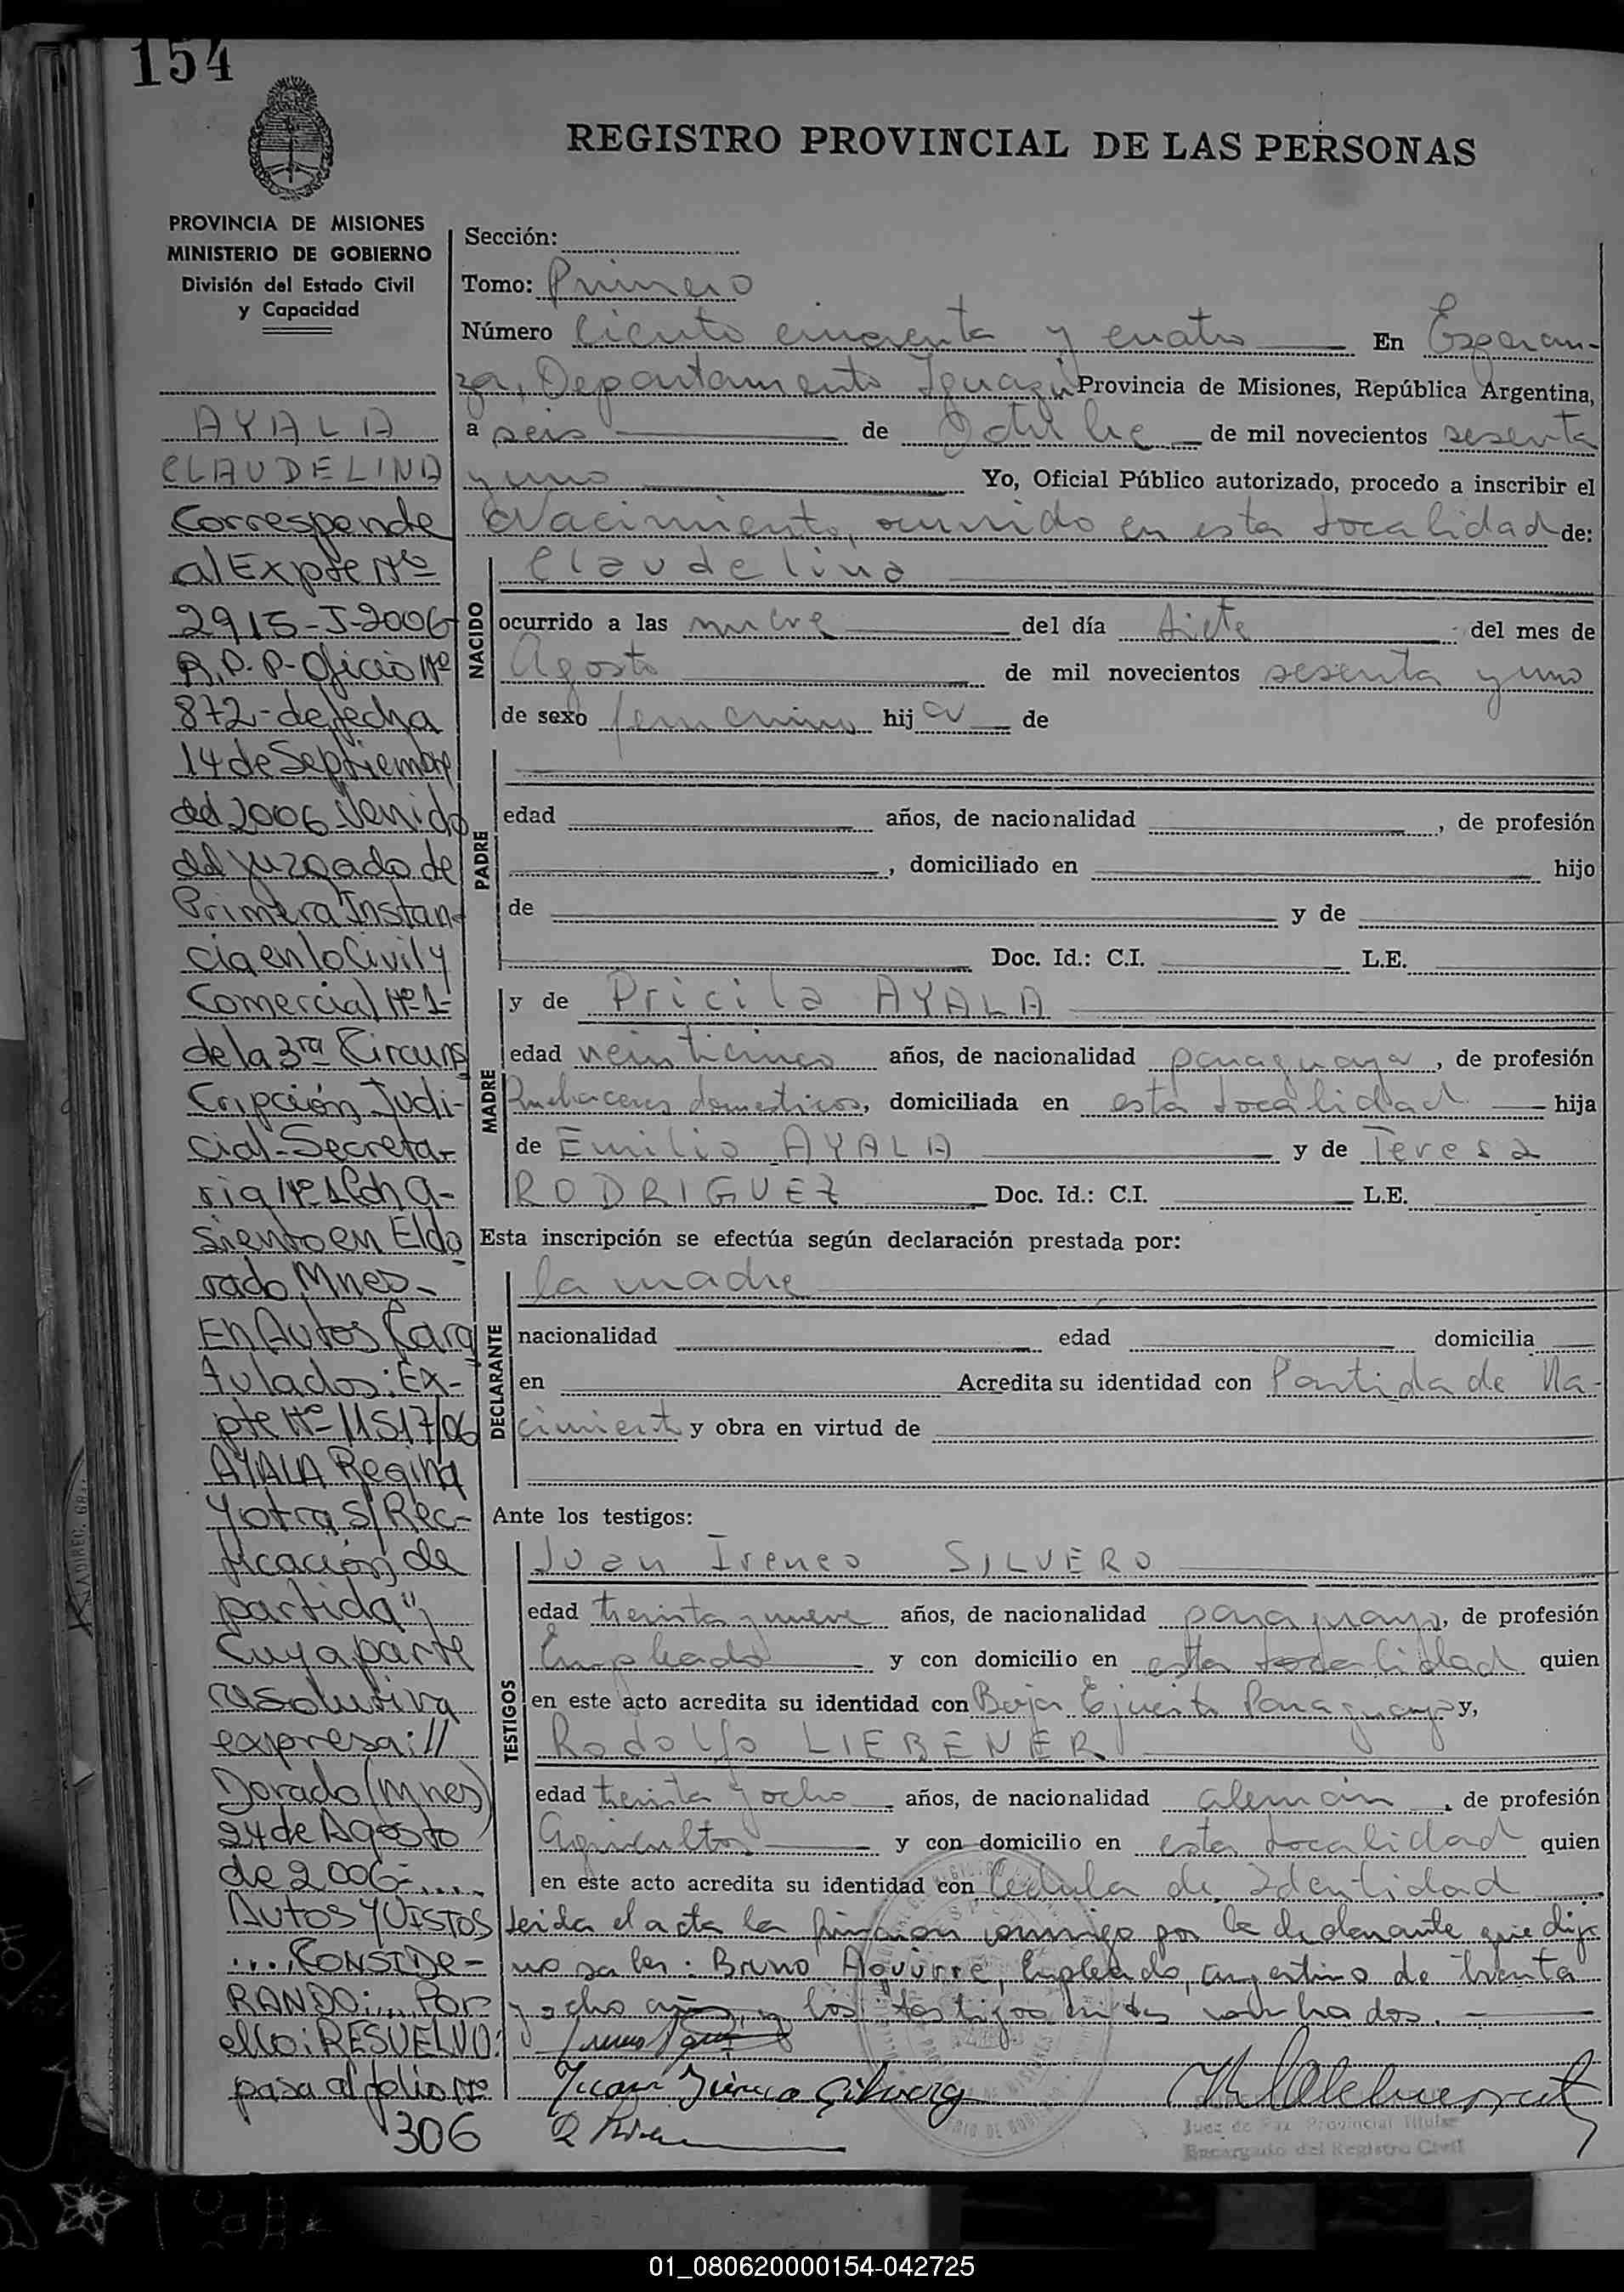 154
REGISTRO PROVINCIAL DE LAS PERSONAS
PROVINCIA DE MISIONES
MINISTERIO DE GOBIERNO
División del Estado Civil
y Capacidad
AYALA
CLAUDELINA
Corresponde
al Expte Nº
2915-J-2006
R.P.P-Oficio Nº
872-de fecha
14 de Septiembre
del 2006-Venido
del Juzgado de
Primera Instan-
cia en lo Civil y
Comercial Nº 1-
de la 3ra Circuns
cripción Judi-
cial-Secreta-
ria Nº 1 con a-
siento en Eldo
rado, Mnes-
En Autos Cara
tulados: Ex-
pte Nº 11517/06
AYALA Regina
y otra s/Rec-
ficación de
partida";
Cuya parte
resolutiva
expresa://
Dorado (Mnes)
24 de Agosto
de 2006-....
AUTOS Y VISTOS
.... CONSIDE-
RANDO:... Por
ello: RESUELVO:
pasa al folio Nº
306
Sección:
Tomo: Primero
Número Ciento cincuenta y cuatro En Esperan-
za, Departamento Iguazú Provincia de Misiones, República Argentina,
a seis de Octubre de mil novecientos sesenta
y uno Yo, Oficial Público autorizado, procedo a inscribir el
Nacimiento, ocurrido en esta localidad de:
NACIDO
Claudelina
ocurrido a las nueve del día siete del mes de
Agosto de mil novecientos sesenta y uno
de sexo femenino hija de
PADRE
edad años, de nacionalidad , de profesión
, domiciliado en hijo
de y de
Doc. Id.: C.I. L.E.
MADRE
y de Pricila AYALA
edad veinticinco años, de nacionalidad paraguaya, de profesión
Quehaceres domesticos, domiciliada en esta localidad hija
de Emilio AYALA y de Teresa
RODRIGUEZ Doc. Id.: C.I. L.E.
Esta inscripción se efectúa según declaración prestada por:
DECLARANTE
la madre
nacionalidad edad domicilia
en Acredita su identidad con Partida de Na-
cimiento y obra en virtud de
Ante los testigos:
TESTIGOS
Juan Ireneo SILVERO
edad treinta y nueve años, de nacionalidad paraguayo, de profesión
Empleado y con domicilio en esta localidad quien
en este acto acredita su identidad con Baja Ejercito Paraguayo y,
Rodolfo LIEBENER
edad treinta y ocho años, de nacionalidad alemán, de profesión
Agricultor y con domicilio en esta localidad quien
en este acto acredita su identidad con Cedula de Identidad
Leida el acta la firmaron conmigo por la declarante que dijo
no saber: Bruno Aguirre, Empleado, argentino de treinta
y ocho años, y los testigos antes nombrados.
Juan Ireneo Silvero
Juez de Paz Provincial Titular
Encargado del Registro Civil
01_080620000154-042725